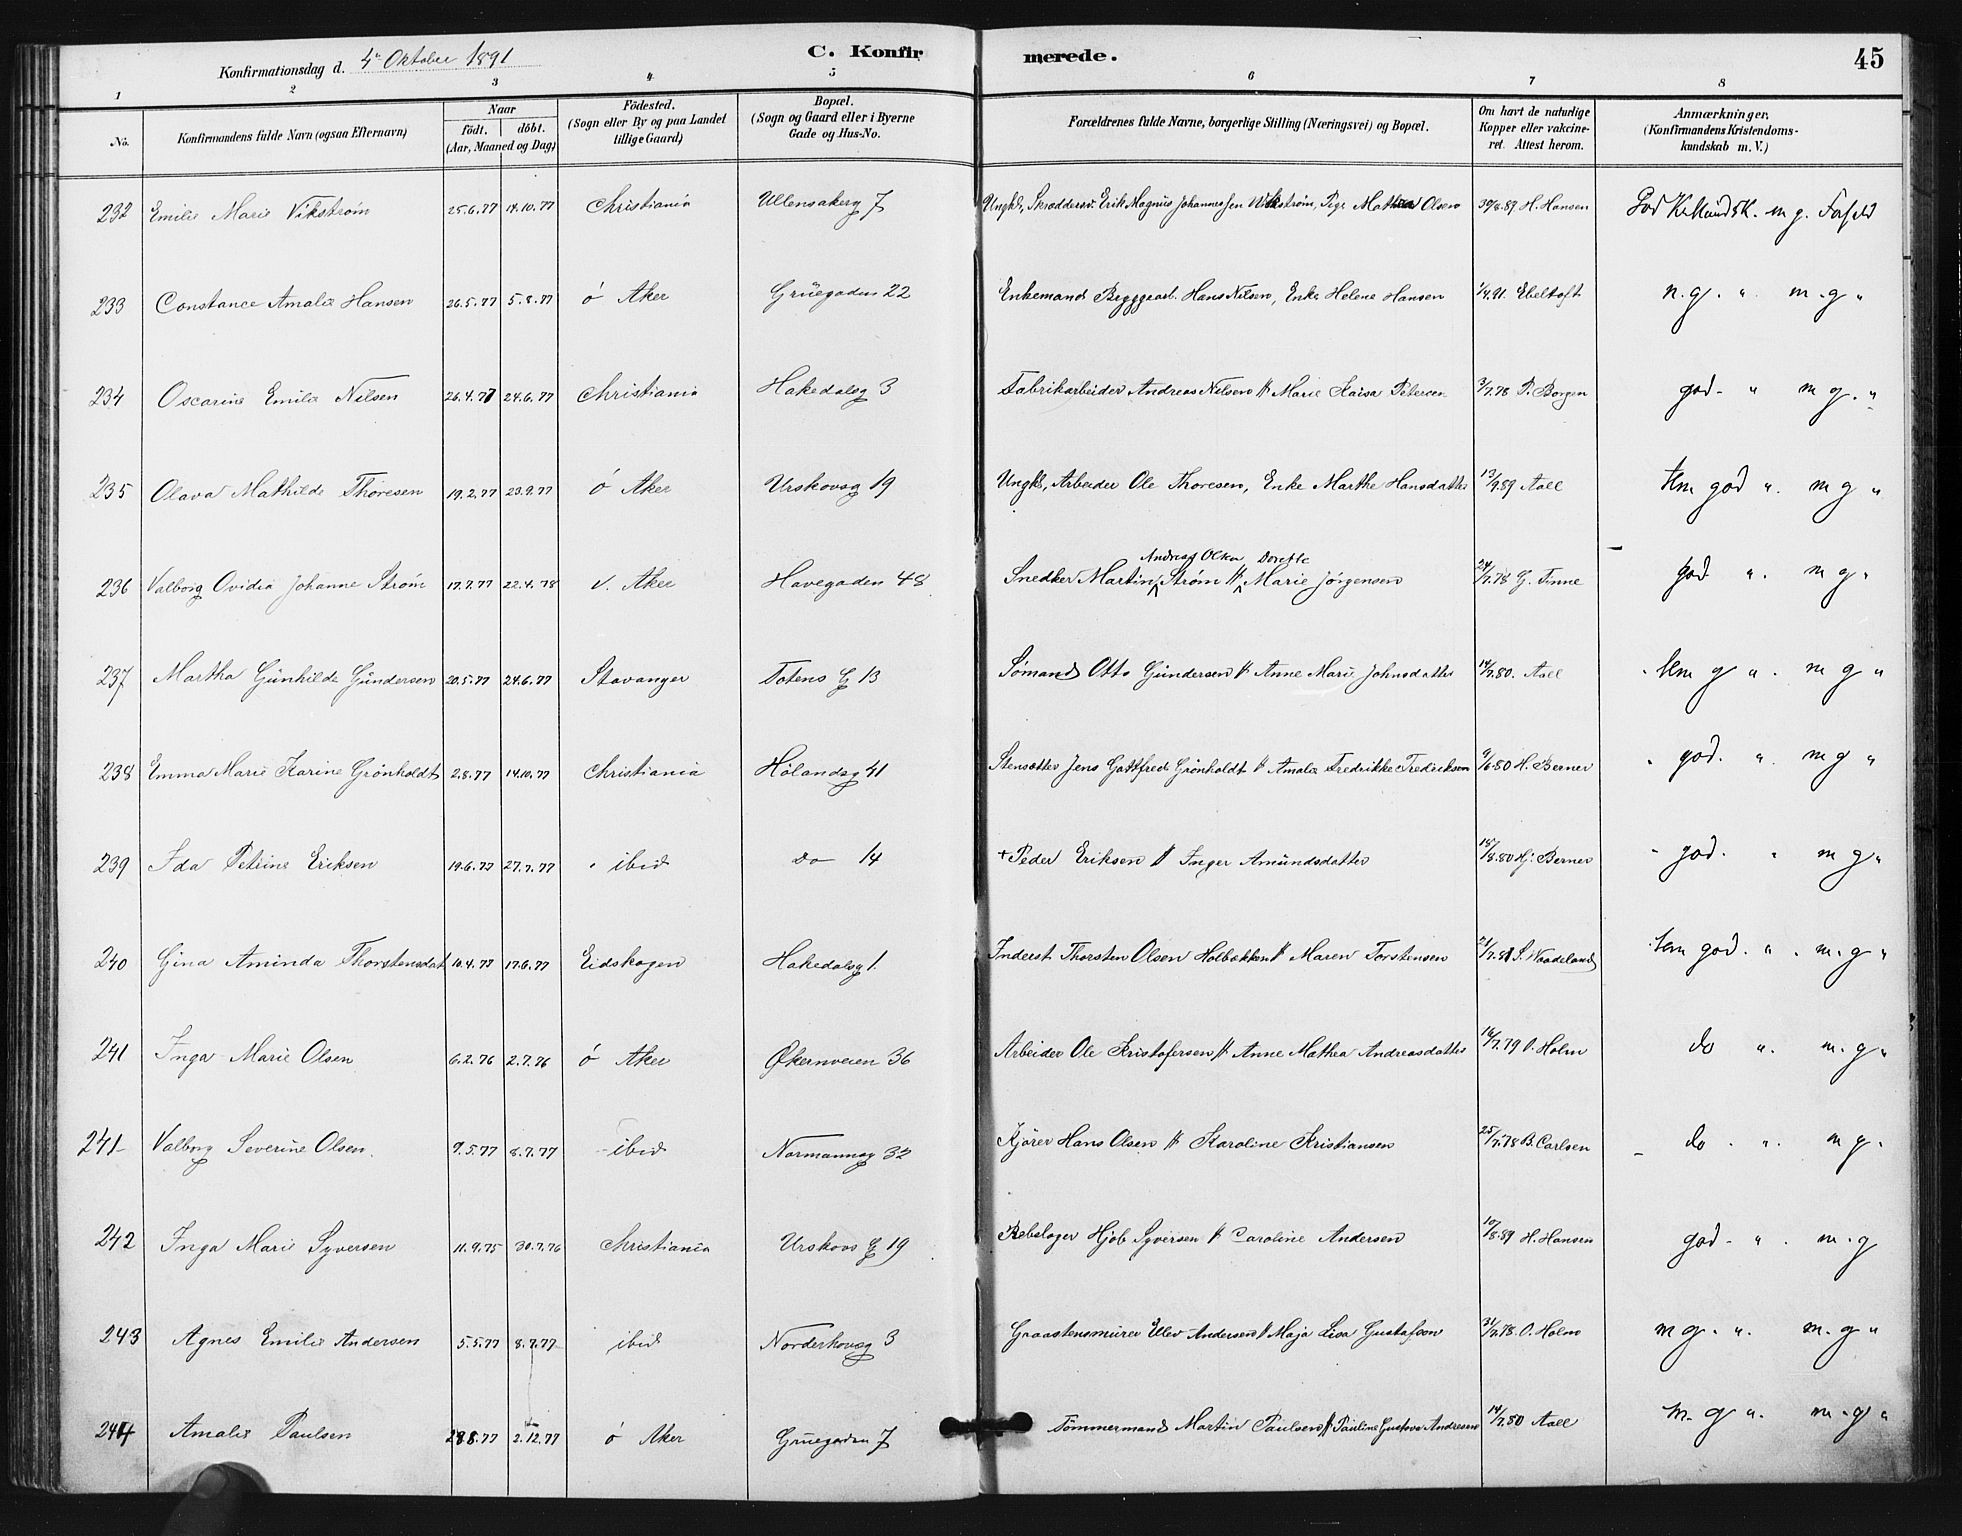 Konfirmationsdag d. 4de Oktober 1891 C. Konfirmerede. 45
1 2 3 4 5 6 7 8
No. Konfirmandens fulde Navn (ogsaa Efternavn) Naar födt. döbt. (Aar, Maaned og Dag) Födested. (Sogn eller By og paa Landet tillige Gaard) Bopæl. (Sogn og Gaard eller i Byerne Gade og Hus-No. Forældrenes fulde Navne, borgerlige Stilling (Næringsvei) og Bopæl. Om havt de naturlige Kopper eller vakcineret. Attest herom. Anmærkninger. (Konfirmandens Kristendomskundskab m. V.)
232 Emilie Marie Vikstrøm 25.6.77 14.10.77 Christiania Ullensakerg 7 Ungk, Skræddersv. Erik Magnus Johannessen Wikstrøm, Pige Mathea Olsen 30/8.89 H. Hansen God Kr. Kundsk. m g. Forhold
233 Constance Amalie Hansen 26.5.77 5.8.77 ö Aker Grüegaden 22 Enkemand Byggearb. Hans Nilsen, Enke Helene Hansen 1/4.91. Ebeltoft n.g. " m.g "
234 Oscarine Emilie Nilsen 26.4.77 24.6.77 Christiania Hakedalsg 3 Fabrikarbeider Andreas Nilsen & Marie Kaisa Petersen 3/7.78 P. Borgen god - " m g. "
235 Olava Mathilde Thoresen 19.2.77 23.9.77 ö Aker Urskovsg 19 Ungk, Arbeider Ole Thoresen, Enke Marthe Hansdatter 13/9.89 Aall tem god ". m g "
236 Valborg Ovidia Johanne Strøm 17.7.77 22.4.78 V. Aker Havegaden 48 Snedker Martin Andreas Olsen Strøm & Dorette Marie Jörgensen 24/7.78 G. Finne god ". m g "
237 Martha Günhilde Gündersen 20.5.77 24.6.77 Stavanger Totens G 13 Sømand Otto Gündersen & Anne Marie Johnsdatter 14/7.80. Aall tem g ". m g "
238 Emma Marie Karine Grönholdt 2.8.77 14.10.77 Christiania Hölandsg 41 Stensætter Jens Gottfred Grönholdt & Amalie Fredrikke Fredriksen 9/6.80 H. Berner god. ". m g "
239 Ida Petrine Eriksen 19.6.77 27.7.77 ibid do 14 + Peder Eriksen & Inger Amündsdatter 18/8.80 Hj. Berner god. " m g "
240 Gina Aminda Thorstensdat 10.4.77 17.6.77 Eidskogen Hakedalsg 1. Inderst Thorsten Olsen Holbækken & Maren Torstensen 21/7.81 S. Waadeland tem god. ". m. g "
241 Inga Marie Olsen 6.2.76 2.7.76 ö Aker Økernveien 36 Arbeider Ole Kristofersen & Anne Mathea Andreasdatter 16/7.79 O. Holm do ". m. g "
241- Valborg Severine Olsen. 9.5.77 8.7.77 ibid Normannsg 32 Kjörer Hans Olsen & Karoline Kristiansen 25/7.78 B. Carlsen do. ". m g.
242 Inga Marie Syversen 11.9.75 30.7.76 Christiania Urskovs G 19 Rebslager Hjöb Syversen & Caroline Andersen 10/8.89 H. Hansen god - ". m. g
243 Agnes Emilie Andersen 5.5.77 8.7.77 ibid Norderhovsg 3 Graastensmurer Ellev Andersen & Maja Lisa Gustafson 31/7.78. O. Holm m g. ". m. g "
244 Amalie Paulsen 28.8.77 2.12.77 ö Aker Grüegaden 7 Tömmermand Martin Paulsen & Pauline Gustava Andresen 14/7.80 Aall m. g ". m. g "